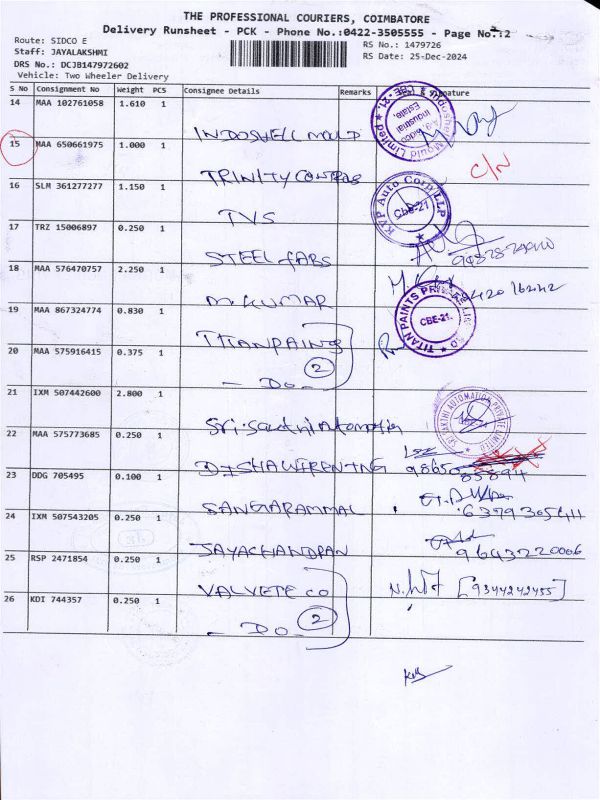 THE PROFESSIONAL COURIERS, COIMBATORE
Delivery Runsheet - PCK - Phone No.:0422-3505555 - Page No.:2
Route: SIDCO E
RS No.: 1479726
Staff: JAYALAKSHMI
RS Date: 25-Dec-2024
DRS No.: DCJB147972602
Vehicle: Two Wheeler Delivery
S No Consignment No Weight PCS Consignee Details Remarks & Signature
14 MAA 102761058 1.610 1 INDOSHELL MOULD
15 MAA 650661975 1.000 1 TRINITY C/N
16 SLM 361277277 1.150 1 TVS
KVP Auto Corp LLP
Cbe-21
17 TRZ 15006897 0.250 1 STEEL FABS
18 MAA 576470757 2.250 1 M.KUMAR
19 MAA 867324774 0.830 1 TITANPAINTS
TITAN PAINTS PRIVATE LIMITED
CBE-21.
20 MAA 575916415 0.375 1 - DO - 2
21 IXM 507442600 2.800 1 Sri.Sakthi Automation
SRI SAKTHI AUTOMATION PRIVATE LIMITED
22 MAA 575773685 0.250 1
23 DDG 705495 0.100 1 SANGARAMMAL 6379305411
24 IXM 507543205 0.250 1 JAYACHANDRAN 9643220006
25 RSP 2471854 0.250 1 VALVETE CO [9344242455]
26 KDI 744357 0.250 1 - DO - 2